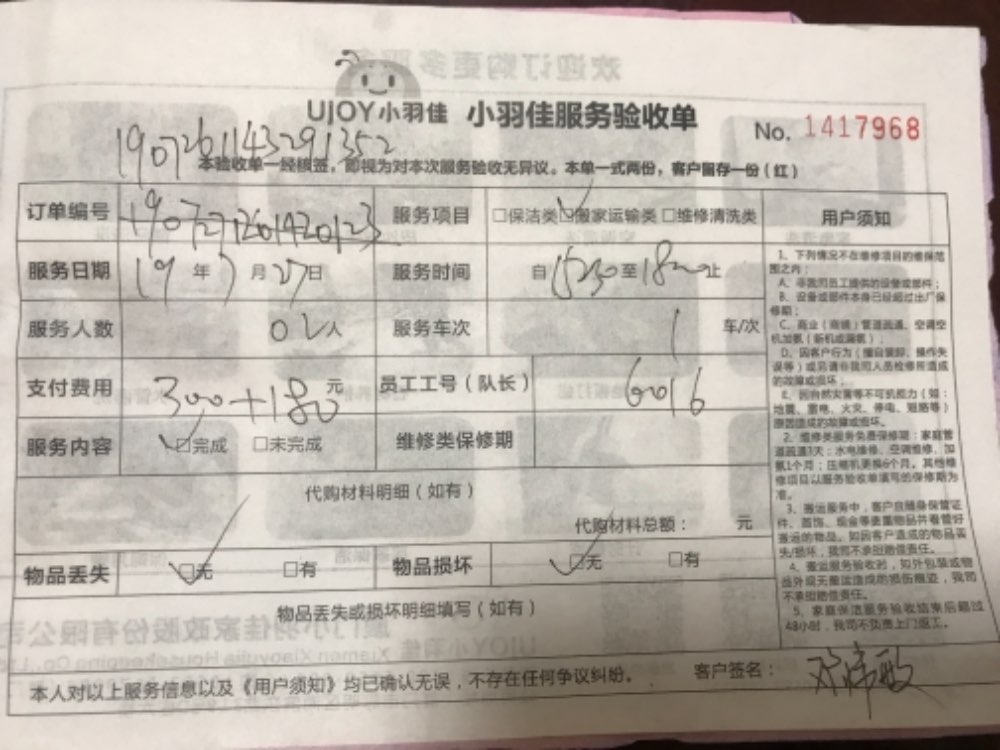 UJOY小羽佳 小羽佳服务验收单
No. 1417968
1907261143291352
本验收单一经核签，即视为对本次服务验收无异议。本单一式两份，客户留存一份（红）
订单编号 1907271261420123 服务项目 □保洁类 □搬家运输类 □维修清洗类 用户须知
服务日期 19年7月27日 服务时间 自1530至1820止
服务人数 02人 服务车次 1 车/次
支付费用 300+180元 员工工号（队长） 6016
服务内容 □完成 □未完成 维修类保修期
代购材料明细（如有）
代购材料总额： 元
物品丢失 □无 □有 物品损坏 □无 □有
物品丢失或损坏明细填写（如有）
本人对以上服务信息以及《用户须知》均已确认无误，不存在任何争议纠纷。 客户签名：
1、下列情况不在维修项目的维保范
围之内：
A、非我司员工提供的设备或部件；
B、设备或部件本身已经超过出厂保
修期；
C、商业（商铺）管道疏通、空调空
机加氨（新机或漏氨）；
D、因客户行为（擅自装卸、操作失
误等）或另请非我司人员检修所造成
的故障或损坏；
E、因自然灾害等不可抗能力（如：
地震、雷电、火灾、停电、短路等）
原因造成的故障或损坏。
2、维修类服务免费保修期：家庭管
道疏通3天；水电维修、空调维修、加
氨1个月；压缩机更换6个月。其他维
修项目以服务验收单填写的保修期为
准。
3、搬运服务中，客户自随身保管证
件、首饰、现金等贵重物品并看管好
搬运的物品。如因客户造成的物品丢
失/损坏，我司不承担赔偿责任。
4、搬运服务验收时，如外包装或物
品外观无搬运造成的损伤痕迹，我司
不承担赔偿责任。
5、家庭保洁服务验收结束后超过
48小时，我司不负责上门返工。